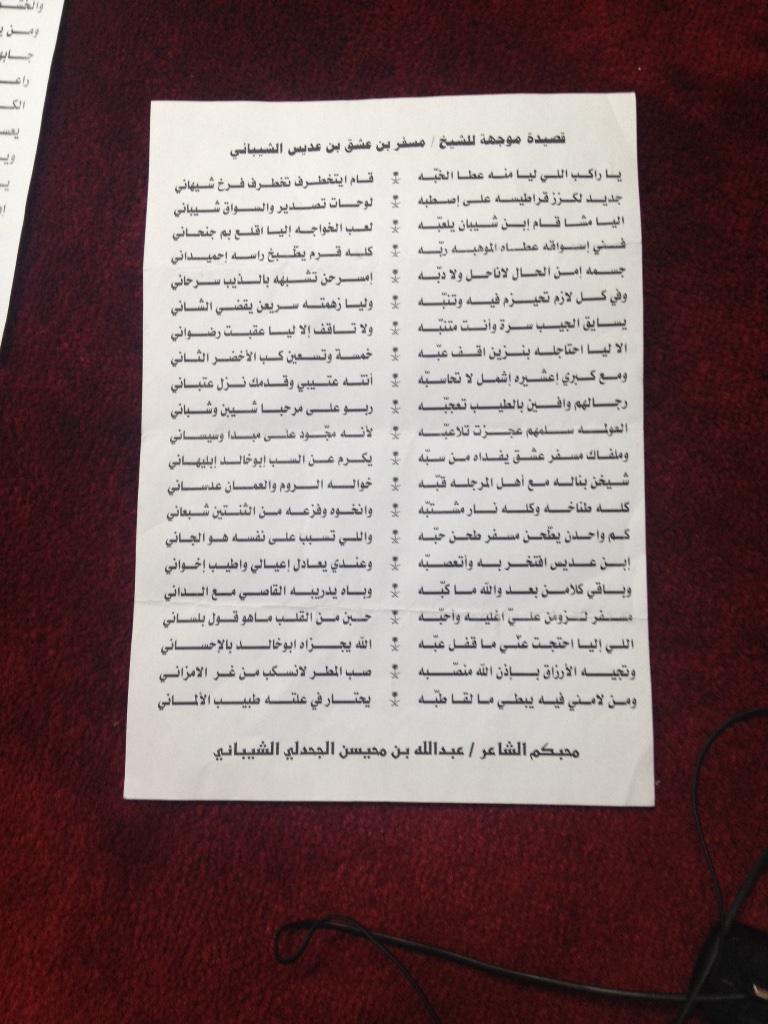 قصيدة موجهة للشيخ / مسفر بن عشق بن عديس الشيباني
يا راكب اللي ليا منه عطا الخبّه قام ايتخطرف تخطرف فرخ شيهاني
جديد لكزز قراطيسه على إصطبه لوحات تصدير والسواق شيباني
اليا مشا قام إبن شيبان يلعبّه لعب الخواجه إليا اقلع بم جنحاني
فني إسواقه عطاه الموهبه ربّه كله قرم يطّبخ راسه إحميداني
جسمه إمن الحال لاناحل ولا دبّه إمسرحن تشبهه بالذيب سرحاني
وفي كل لازم تحيزم فيه وتنبّه وليا زهمته سريعن يقضي الشاني
يسابق الجيب سرة وأنت متنبّه ولا تاقف إلا ليا عقبت رضواني
الا ليا احتاجله بنزين اقف عبّه خمسة وتسعين كب الأخضر الثاني
ومع كبري إعشيره إشمل لا تحاسبّه أنته عتيبي وقدمك نزل عتباني
رجالهم وافين بالطيب تعجبّه ربو على مرحبا شيبن وشباني
العوله سلمهم عجزت تلاعبّه لأنه مجّود على مبدا وسيساني
وملفاك مسفر عشق يفداه من سبّه يكرم عن السب إبوخالد إبليهاني
شيخن بناله مع أهل المرجله قبّه خواله الروم والعمان عدساني
كله طناخه وكله نار مشتبّه وانخوه وفزعه من الثنتين شبعاني
كم واحدن يطّحن مسفر طحن حبّه واللي تسبب على نفسه هو الجاني
إبن عديس افتخر به وأتعصبّه وعندي يعادل إعيالي واطيب إخواني
وباقي كلامن بعد والله ما كبّه وباه يدريبه القاصي مع الداني
مسفر لزومن عليّ اغليه وأحبّه حبن من القلب ماهو قول بلساني
اللي إليا احتجت عنّي ما قفل عبّه الله يجزاه ابوخالد بالإحساني
وتجيه الأرزاق بإذن الله منصّبه صب المطر لانسكب من غر الامزاني
ومن لامني فيه يبطي ما لقا طبّه يحتار في علته طبيب الألماني
محبكم الشاعر / عبدالله بن محيسن الجحدلي الشيباني